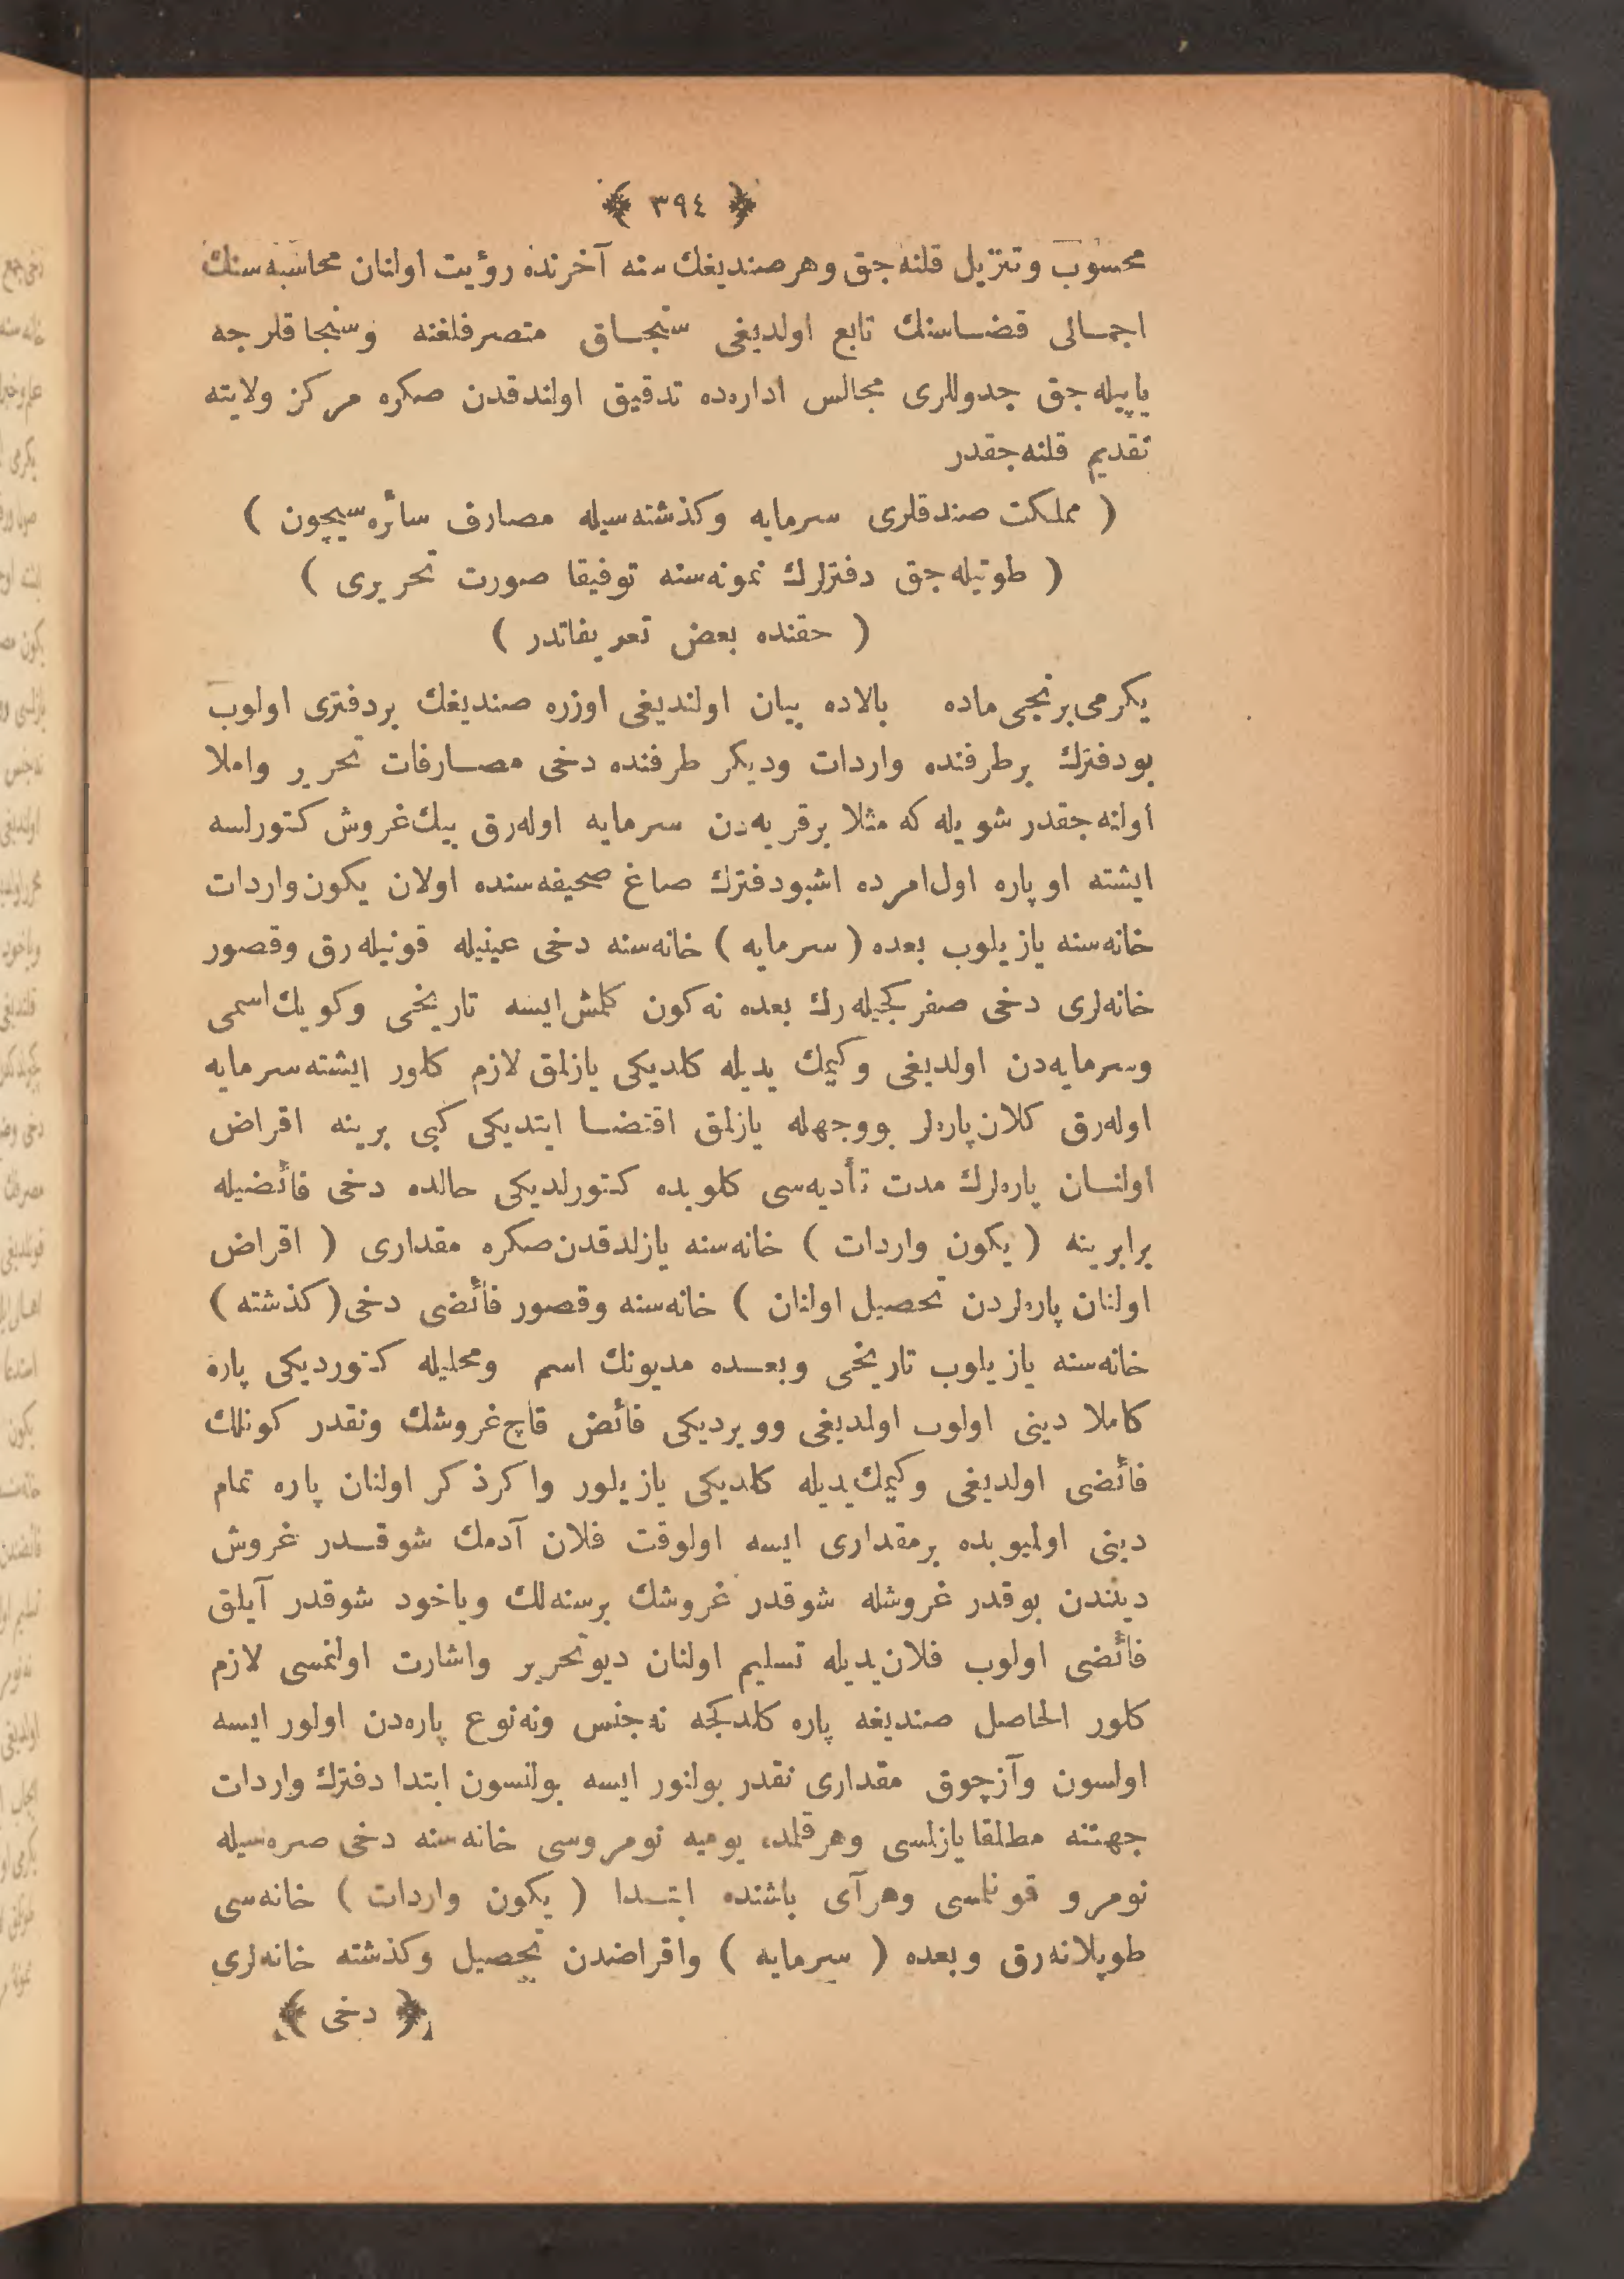 ﴿ ٣٩٤ ﴾
محسوب وتنزيل قلنه‌جق وهر صنديغك سنه آخرنده رؤيت اولنان محاسبه‌سنك
اجمالى قضاسنك تابع اولديغى سنجاق متصرفلغنه وسنجاقلرجه
ياپيله‌جق جدوللرى مجالس اداره‌ده تدقيق اولندقدن صكره مركز ولايته
تقديم قلنه‌جقدر
( مملكت صندقلرى سرمايه وكذشته‌سيله مصارف سائره‌سيچون )
( طوتيله‌جق دفترلرك نمونه‌سنه توفيقا صورت تحريرى )
( حقنده بعض تعريفاتدر )
يكرمى برنجى ماده بالاده بيان اولنديغى اوزره صنديغك بر دفترى اولوب
بو دفترك بر طرفنده واردات وديكر طرفنده دخى مصارفات تحرير واملا
اولنه‌جقدر شويله كه مثلا بر قريه‌دن سرمايه اوله‌رق بيك غروش كتورلسه
ايشته او پاره اول امرده اشبو دفترك صاغ صحيفه‌سنده اولان يكون واردات
خانه‌سنه يازيلوب بعده ( سرمايه ) خانه‌سنه دخى عينيله قونيله‌رق وقصور
خانه‌لرى دخى صفر كچيله‌رك بعده نه كون كلمش ايسه تاريخى وكويك اسمى
وسرمايه‌دن اولديغى وكيمك يديله كلديكى يازلمق لازم كلور ايشته سرمايه
اوله‌رق كلان پاره‌لر بووجهله يازلمق اقتضا ايتديكى كبى برينه اقراض
اولنان پاره‌لرك مدت تأديه‌سى كلوبده كتورلديكى حالده دخى فائضيله
برابرينه ( يكون واردات ) خانه‌سنه يازلدقدن صكره مقدارى ( اقراض
اولنان پاره‌لردن تحصيل اولنان ) خانه‌سنه وقصور فائضى دخى ( كذشته )
خانه‌سنه يازيلوب تاريخى وبعده مديونك اسم ومحليله كتورديكى پاره
كاملا دينى اولوب اولديغى وويرديكى فائض قاچ غروشك ونقدر كونلك
فائضى اولديغى وكيمك يديله كلديكى يازيلور واكر ذكر اولنان پاره تمام
دينى اولميوبده بر مقدارى ايسه اولوقت فلان آدمك شوقدر غروش
ديندن بوقدر غروشله شوقدر غروشك بر سنه‌لك وياخود شوقدر آيلق
فائضى اولوب فلان يديله تسليم اولنان ديو تحرير واشارت اولنمسى لازم
كلور الحاصل صنديغه پاره كلدكجه نه جنس ونه نوع پاره‌دن اولور ايسه
اولسون وآز چوق مقدارى نقدر بولنور ايسه بولنسون ابتدا دفترك واردات
جهتنه مطلقا يازلسى وهر قلمده يوميه نومروسى خانه‌سنه دخى صره‌سيله
نومرو قونلسى وهر آى باشنده ابتدا ( يكون واردات ) خانه‌سى
طوپلانه‌رق وبعده ( سرمايه ) واقراضدن تحصيل وكذشته خانه‌لرى
﴿ دخى ﴾